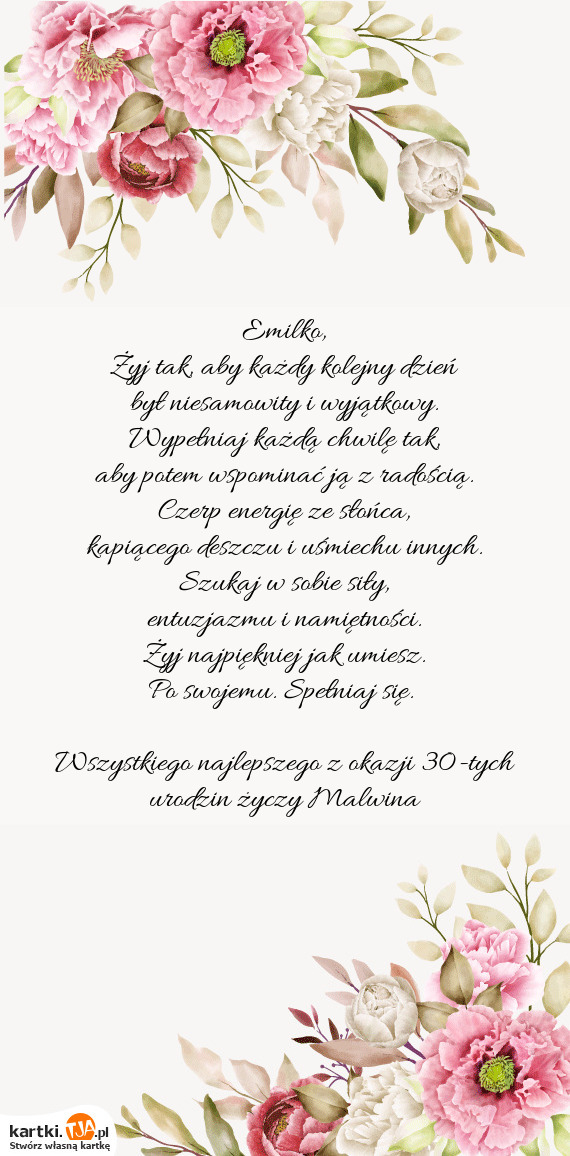 Emilko,
Żyj tak, aby każdy kolejny dzień
był niesamowity i wyjątkowy.
Wypełniaj każdą chwilę tak,
aby potem wspominać ją z radością.
Czerp energię ze słońca,
kapiącego deszczu i uśmiechu innych.
Szukaj w sobie siły,
entuzjazmu i namiętności.
Żyj najpiękniej jak umiesz.
Po swojemu. Spełniaj się.
Wszystkiego najlepszego z okazji 30-tych
urodzin życzy Malwina
kartki.TJA.pl
Stwórz własną kartkę